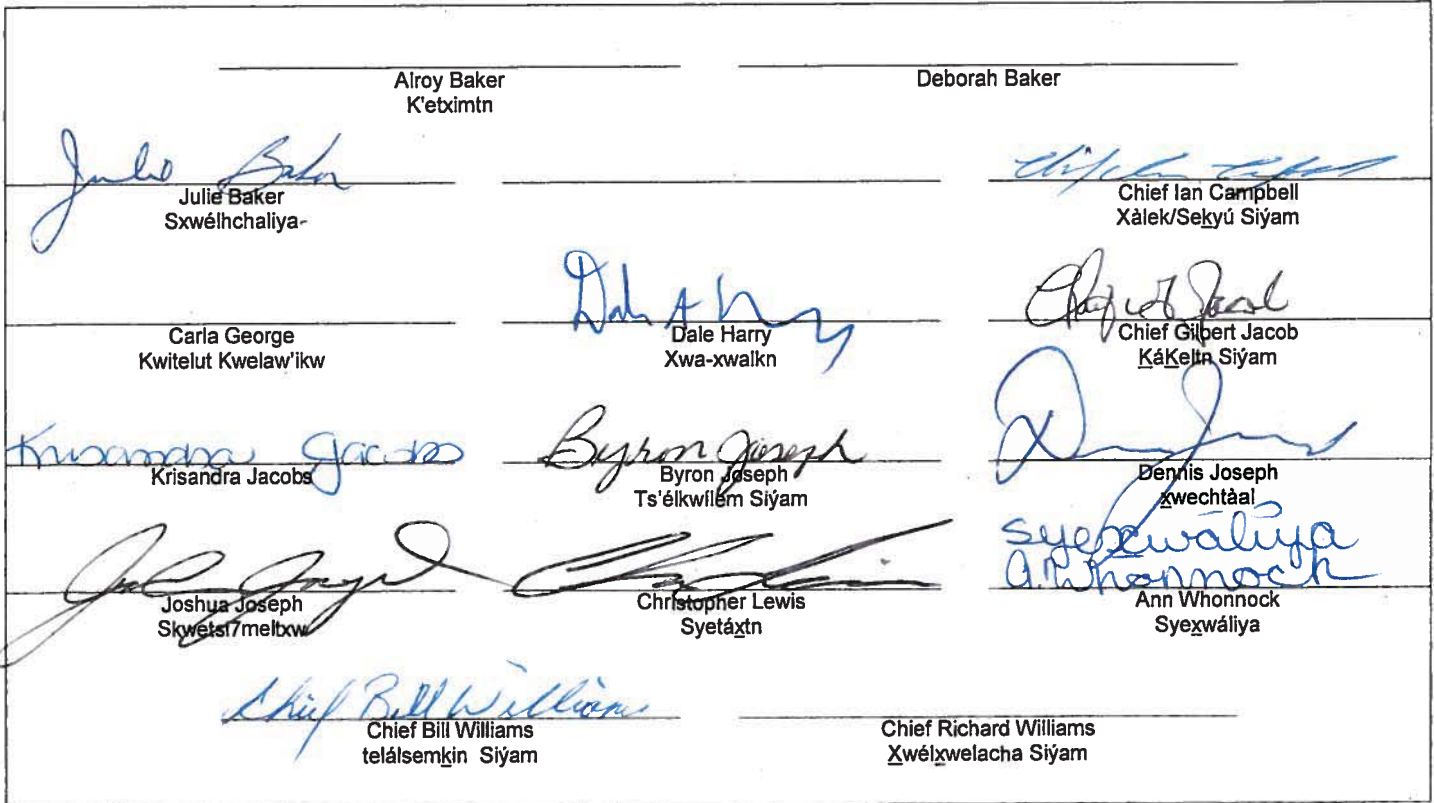 Alroy Baker
K'etximtn
Deborah Baker
Julie Baker
Julie Baker
Sxwélhchaliya-
Chief Ian Campbell
Xàlek/Seḵyú Siýam
Carla George
Kwitelut Kwelaw'ikw
Dale Harry
Xwa-xwalkn
Chief Gilbert Jacob
ḴáḴeltn Siýam
Krisandra Jacobs
Krisandra Jacobs
Byron Joseph
Byron Joseph
Ts'élkwílem Siýam
Dennis Joseph
x̱wechtàal
Joshua Joseph
Skwetsi7meltxw
Christopher Lewis
Syetáx̱tn
syex̱wáliya
A. Whonnock
Ann Whonnock
Syex̱wáliya
Chief Bill Williams
Chief Bill Williams
telálsemḵin Siýam
Chief Richard Williams
X̱wélx̱welacha Siýam